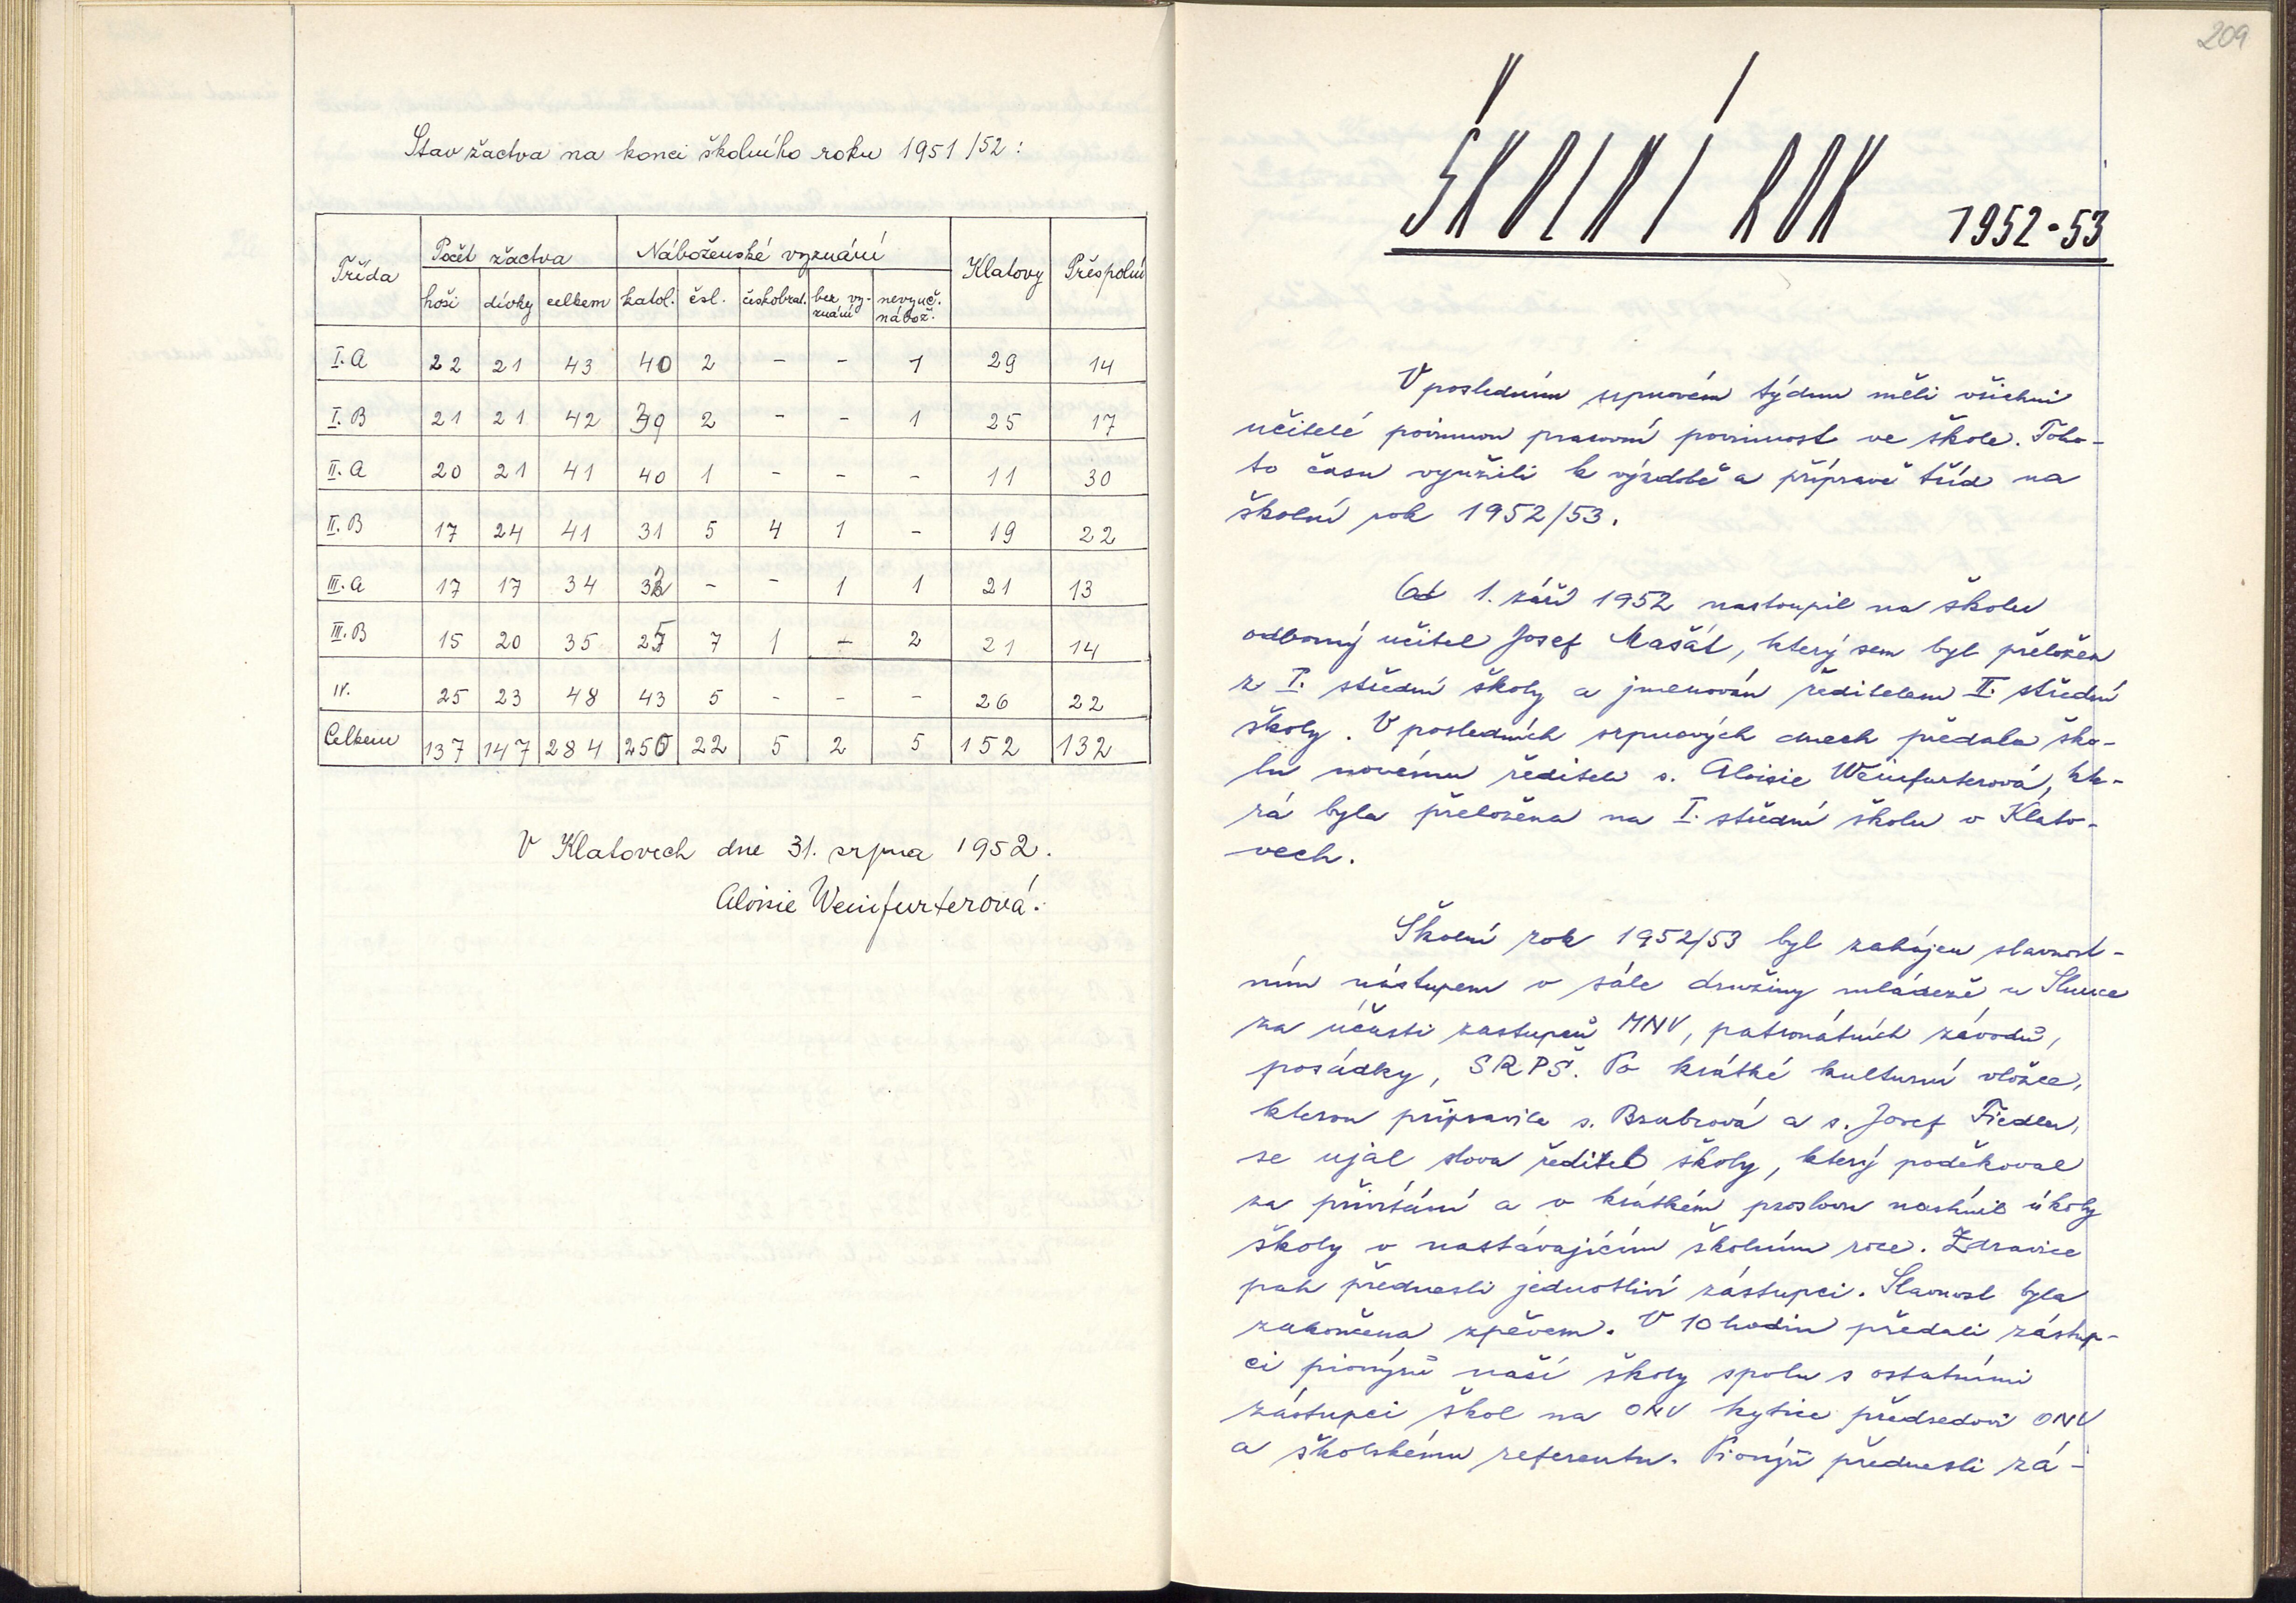 Stav žactva na konci školního roku 1951/52:
Třída Počet žactva Náboženské vyznání Klatovy Přespolní
hoši dívky celkem katol. čsl. českobrat. bez vy- nevyuč.
znání nábož.
I.A 22 21 43 40 2 - - 1 29 14
I.B 21 21 42 39 2 - - 1 25 17
II.A 20 21 41 40 1 - - - 11 30
II.B 17 24 41 31 5 4 1 - 19 22
III.A 17 17 34 32 - - 1 1 21 13
III.B 15 20 35 25 7 1 - 2 21 14
IV. 25 23 48 43 5 - - - 26 22
Celkem 137 147 284 250 22 5 2 5 152 132
V Klatovech dne 31. srpna 1952.
Aloisie Weinfurterová.
209
ŠKOLNÍ ROK 1952-53
V posledním srpnovém týdnu měli všichni
učitelé povinnou pracovní povinnost ve škole. Toho-
to času využili k výzdobě a přípravě tříd na
školní rok 1952/53.
Od 1. září 1952 nastoupil na školu
odborný učitel Josef Mašát, který sem byl přeložen
z I. střední školy a jmenován ředitelem II. střední
školy. V posledních srpnových dnech předala ško-
lu novému řediteli s. Aloisie Weinfurterová, kte-
rá byla přeložena na I. střední školu v Klato-
vech.
Školní rok 1952/53 byl zahájen slavnost-
ním nástupem v sále družiny mládeže u Slunce
za účasti zástupců MNV, patronátních závodů,
posádky, SRPŠ. Po krátké kulturní vložce,
kterou připravila s. Brabcová a s. Josef Fiedler,
se ujal slova ředitel školy, který poděkoval
za přivítání a v krátkém proslovu nastínil úkoly
školy v nastávajícím školním roce. Zdravice
pak přednesli jednotliví zástupci. Slavnost byla
zakončena zpěvem. V 10 hodin předali zástup-
ci pionýrů naší školy spolu s ostatními
zástupci škol na ONV kytice předsedovi ONV
a školskému referentu. Pionýři přednesli zá-